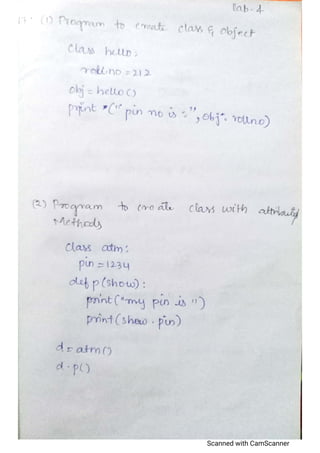 Lab-1
17. (1) Program to create class & object
class hello:
rollno = 212
obj = hello()
print ("pin no is:", obj. rollno)
(2) Program to create class with attributes
Methods
class atm:
pin = 1234
def p(show):
print("my pin is")
print(show.pin)
d = atm()
d.p()
Scanned with CamScanner